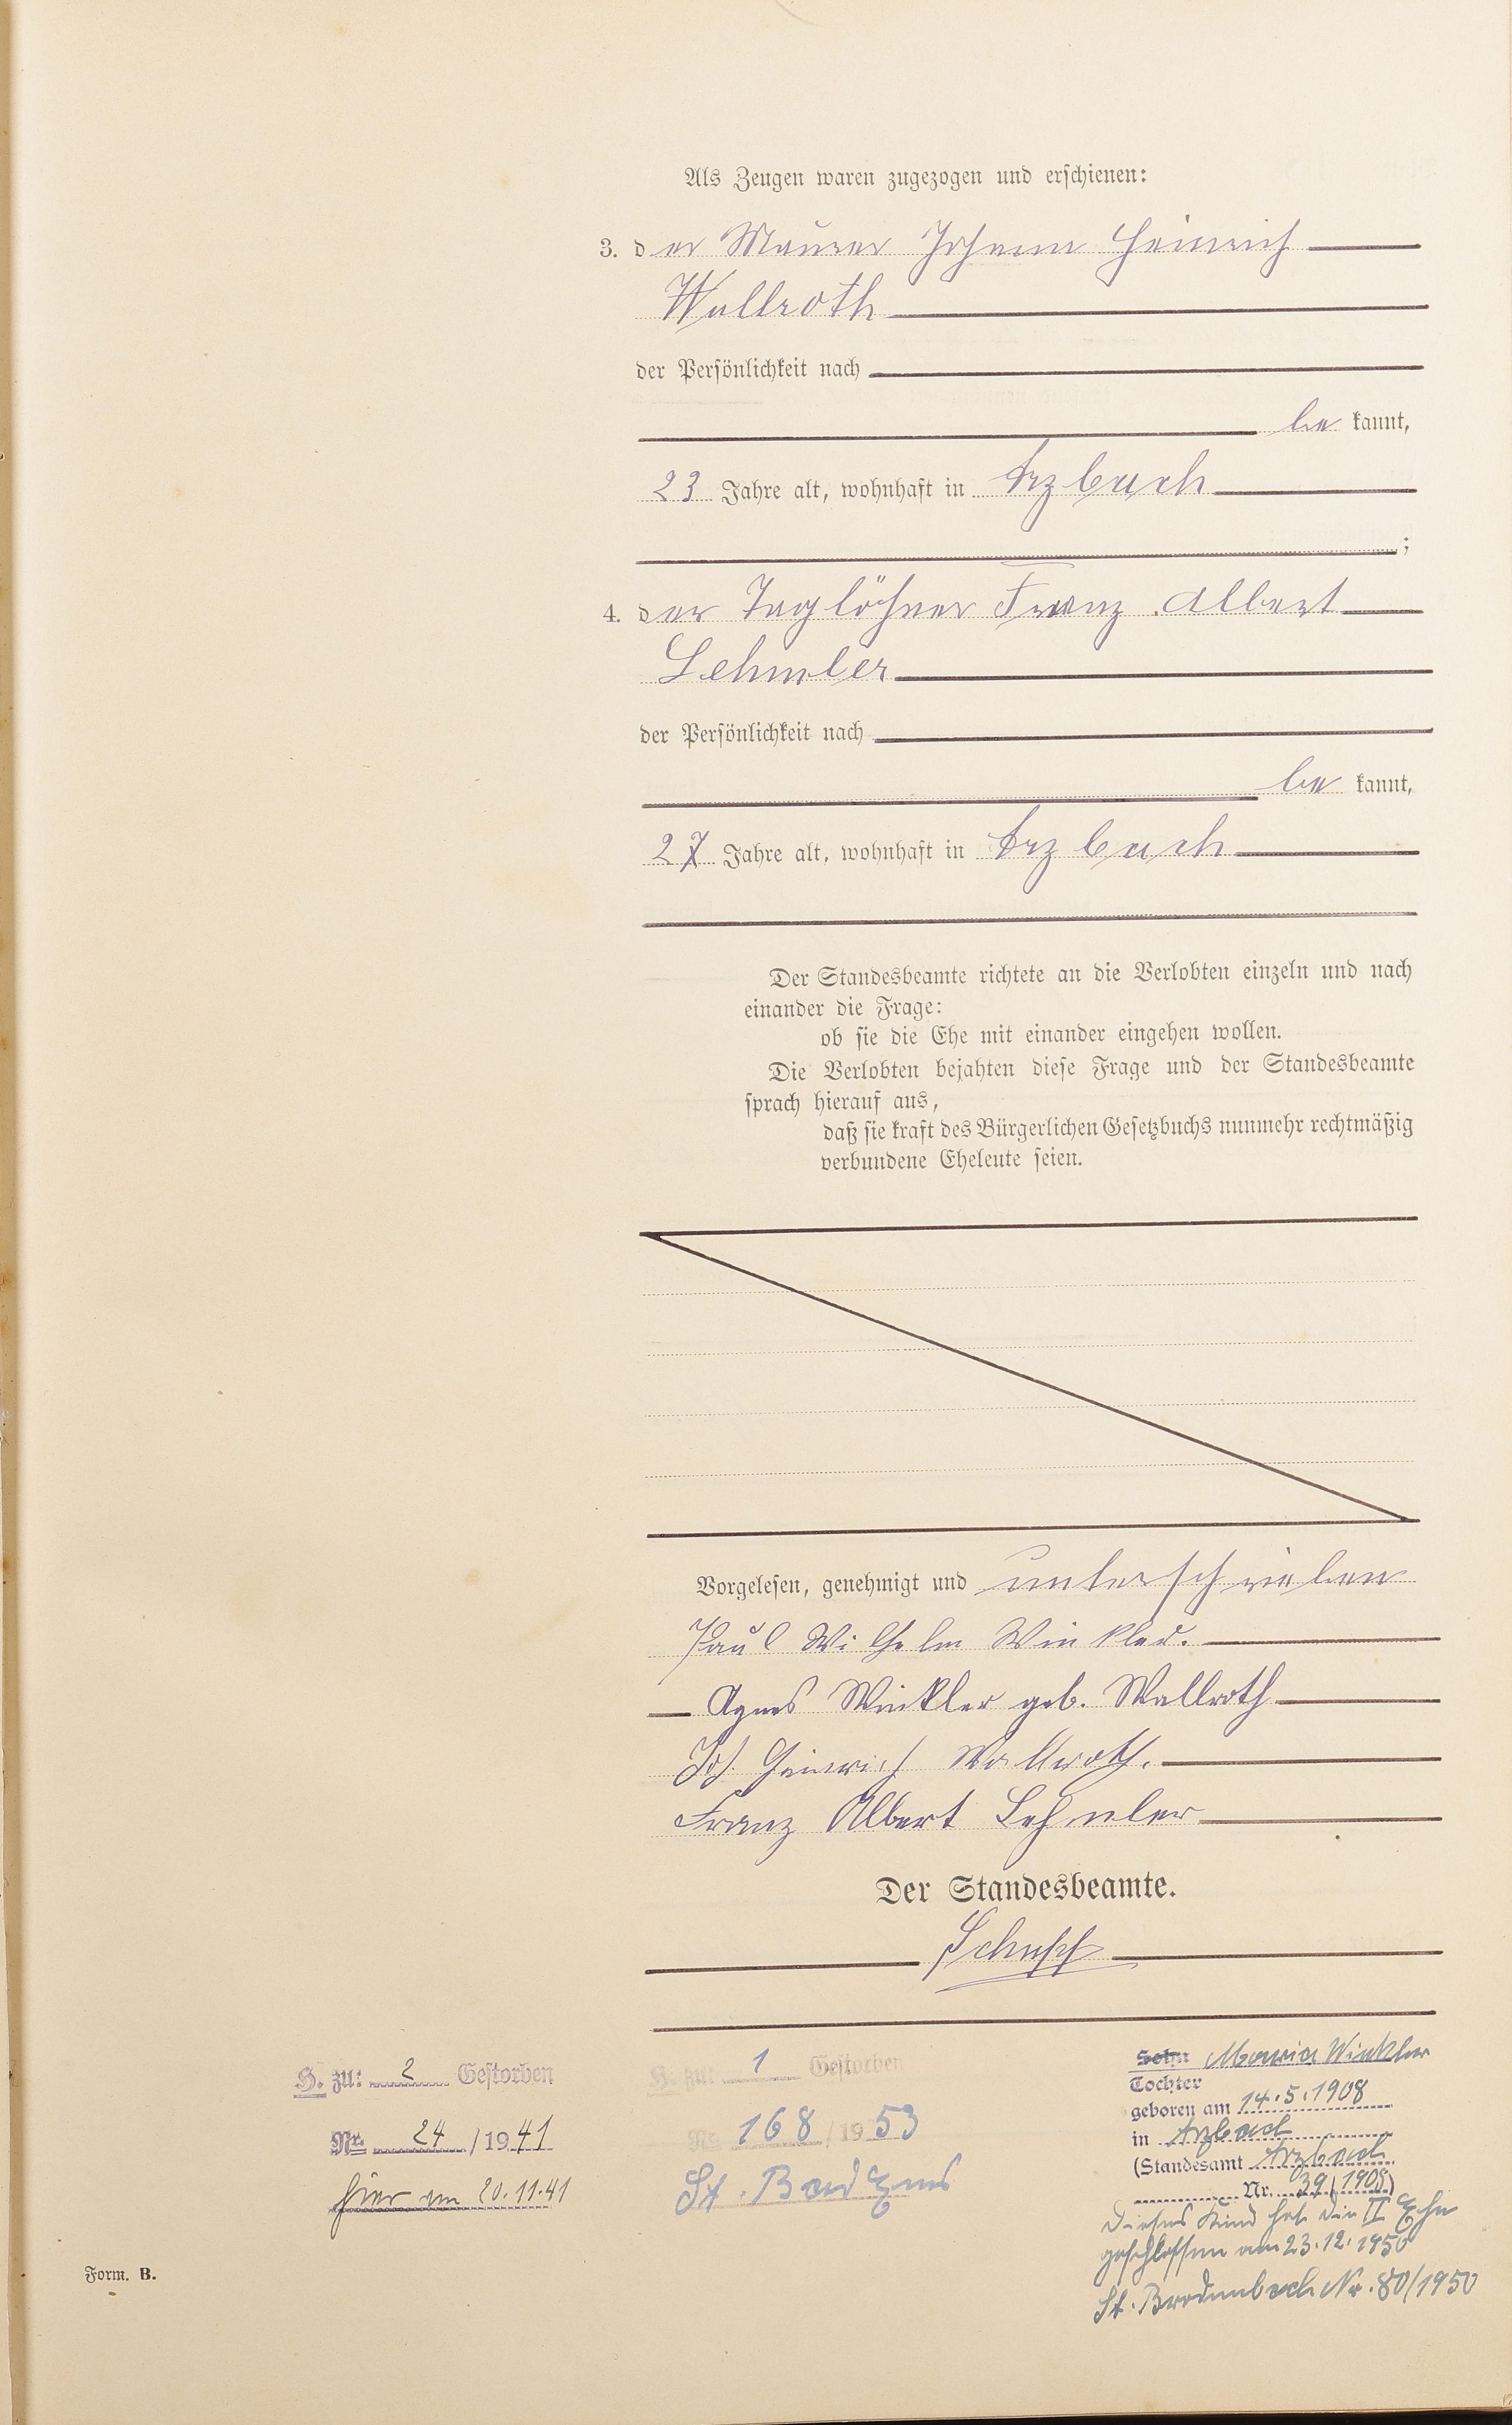 Als Zeugen waren zugezogen und erschienen:
3. der Maurer Johann Heinrich
Wallroth
der Persönlichkeit nach
be kannt,
23 Jahre alt, wohnhaft in Arzbach
;
4. der Taglöhner Franz Albert
Lehmler
der Persönlichkeit nach
be kannt,
27 Jahre alt, wohnhaft in Arzbach
Der Standesbeamte richtete an die Verlobten einzeln und nach
einander die Frage:
ob sie die Ehe mit einander eingehen wollen.
Die Verlobten bejahten diese Frage und der Standesbeamte
sprach hierauf aus,
daß sie kraft des Bürgerlichen Gesetzbuchs nunmehr rechtmäßig
verbundene Eheleute seien.
Vorgelesen, genehmigt und unterschrieben
Paul Wilhelm Winkler.
Agnes Winkler geb. Wallroth
Joh. Heinrich Wallroth.
Franz Albert Lehmler
Der Standesbeamte.
H. zu: 2 Gestorben
Nr. 24 / 1941
hier am 20.11.41
H. zu: 1 Gestorben
Nr. 168 / 1953
St. Bad Ems
Sohn Maria Winkler
Tochter
geboren am 14.5.1908
in Arzbach
(Standesamt Arzbach
Nr. 39/1908)
Dieses Kind hat die II Ehe
geschlossen am 23.12.1950
St. Brodenbach Nr. 80/1950
Form. B.